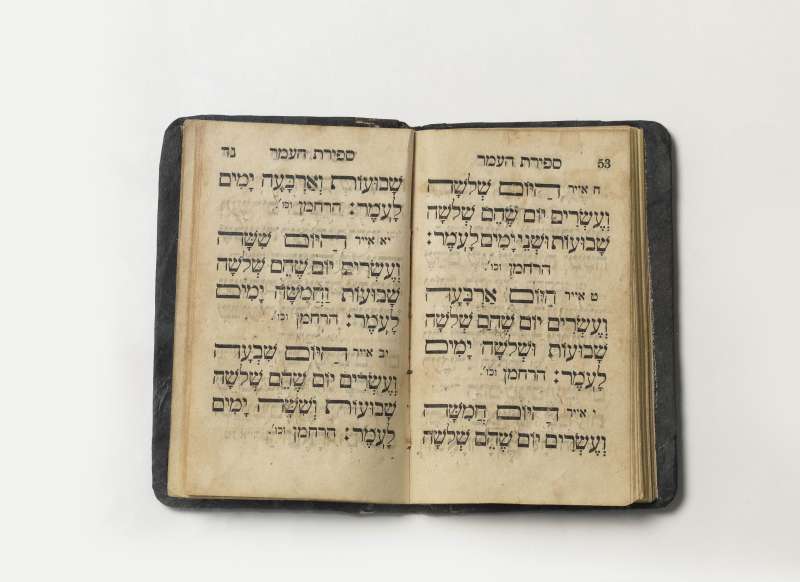 53 ספירת העמר
ח אייר הַיּוֹם שְׁלשָׁה
וְעֶשְׂרִים יוֹם שֶׁהֵם שְׁלשָׁה
שָׁבוּעוֹת וּשְׁנֵי יָמִים לָעֹמֶר:
הרחמן וכו'.
ט אייר הַיּוֹם אַרְבָּעָה
וְעֶשְׂרִים יוֹם שֶׁהֵם שְׁלשָׁה
שָׁבוּעוֹת וּשְׁלשָׁה יָמִים
לָעֹמֶר: הרחמן וכו'.
י אייר הַיּוֹם חֲמִשָּׁה
וְעֶשְׂרִים יוֹם שֶׁהֵם שְׁלשָׁה
ספירת העמר נד
שָׁבוּעוֹת וְאַרְבָּעָה יָמִים
לָעֹמֶר: הרחמן וכו'.
יא אייר הַיּוֹם שִׁשָּׁה
וְעֶשְׂרִים יוֹם שֶׁהֵם שְׁלשָׁה
שָׁבוּעוֹת וַחֲמִשָּׁה יָמִים
לָעֹמֶר: הרחמן וכו'.
יב אייר הַיּוֹם שִׁבְעָה
וְעֶשְׂרִים יוֹם שֶׁהֵם שְׁלשָׁה
שָׁבוּעוֹת וְשִׁשָּׁה יָמִים
לָעֹמֶר: הרחמן וכו'.